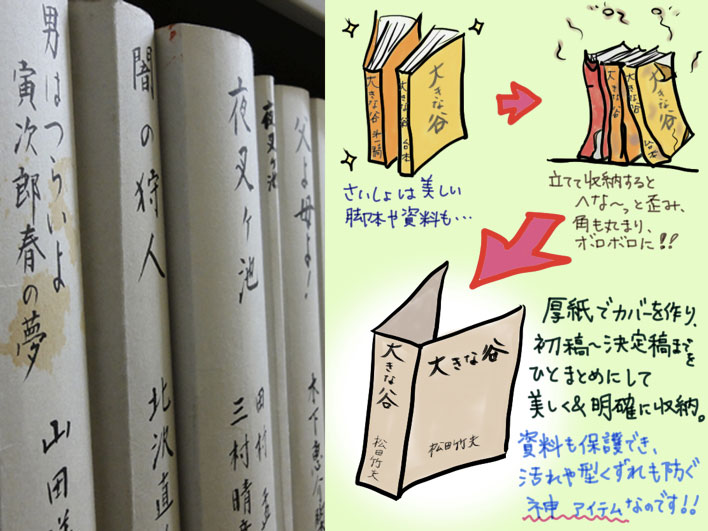 男はつらいよ
寅次郎春の夢
山田
闇の狩人
北波直
夜叉ヶ池
田村
三村晴彦
夜叉ヶ池
父よ母よ!
木下恵介
大きな谷
第一稿
大きな谷
台本
大きな谷
さいしょは美しい
脚本や資料も…
大きな谷
大きな谷
台本
立てて収納すると
へな〜っと歪み、
角も丸まり、
ボロボロに!!
大きな谷
松田竹夫
大きな谷
松田竹夫
厚紙でカバーを作り、
初稿〜決定稿までを
ひとまとめにして
美しく&明確に収納。
資料も保護でき、
汚れや型くずれも防ぐ
神アイテムなのです!!